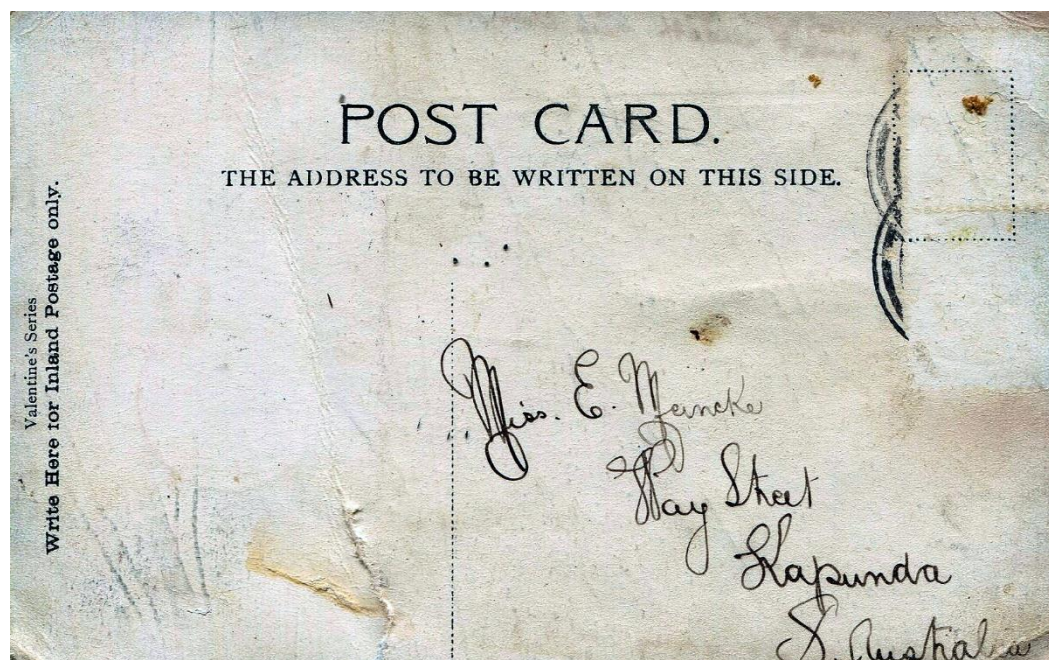 POST CARD.
THE ADDRESS TO BE WRITTEN ON THIS SIDE.
Valentine's Series
Write Here for Inland Postage only.
Miss. E. Meincke
Hay Street
Kapunda
S. Australia